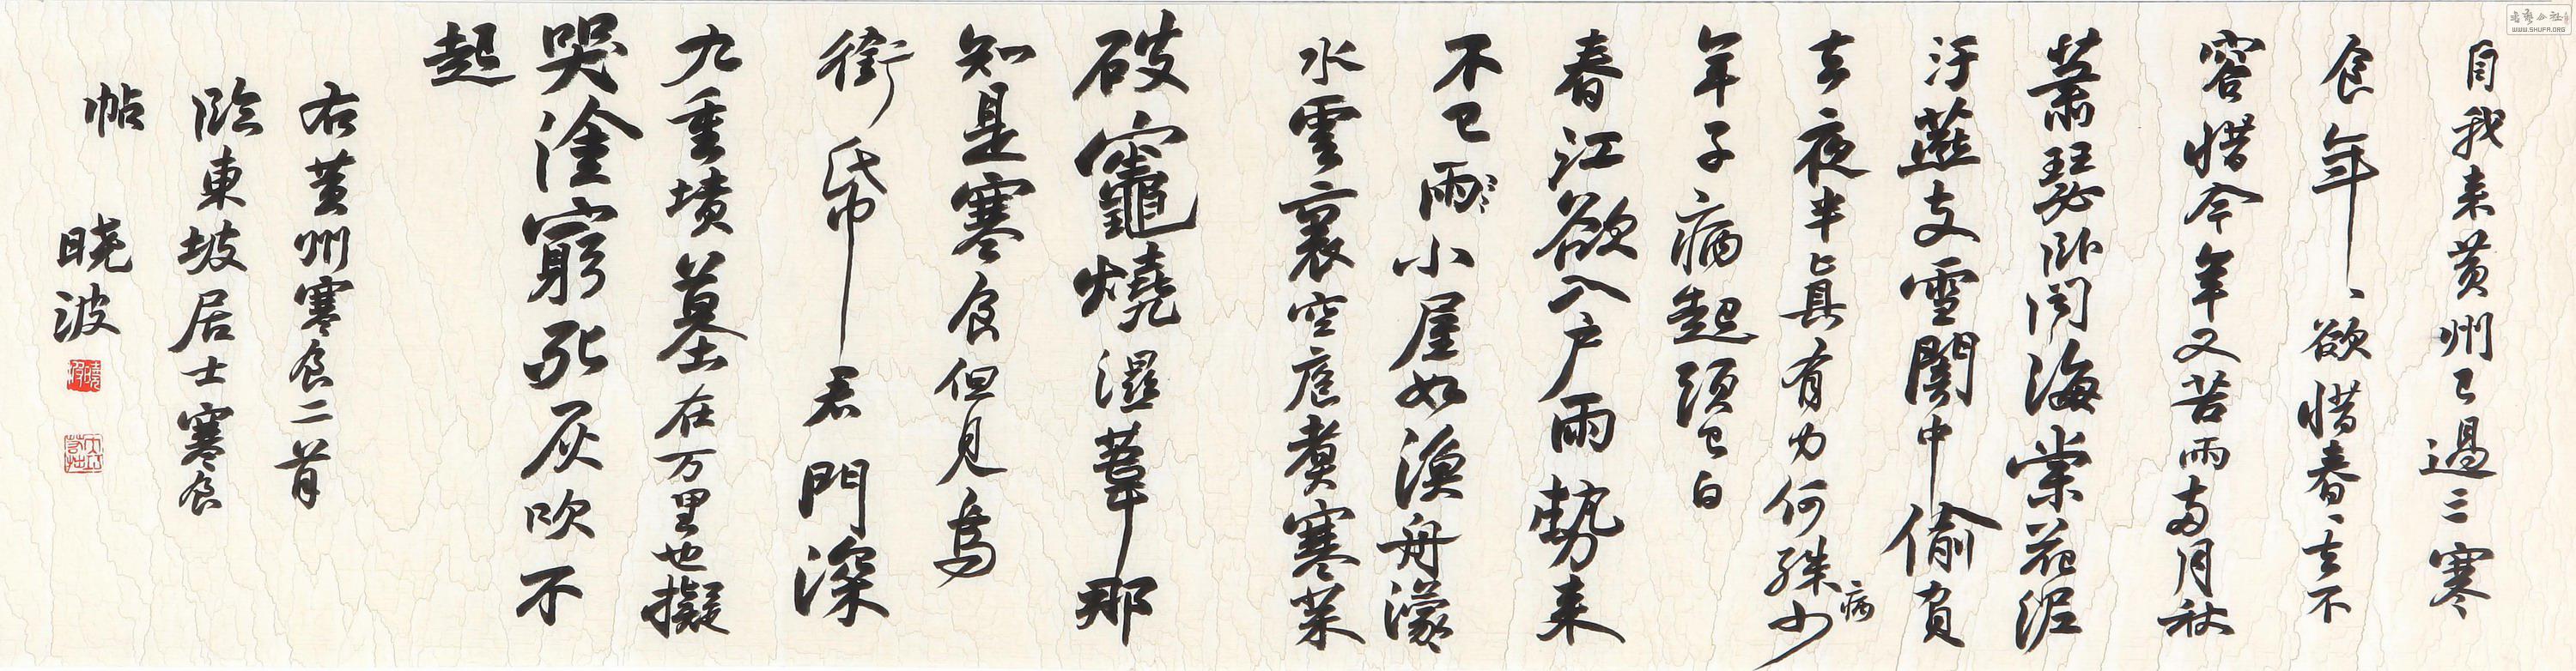 自我来黄州已過三寒
食年、欲惜春、去不
容惜今年又苦雨兩月秋
蕭瑟卧聞海棠花泥
汙燕支雪闇中偷負
去夜半真有力何殊少病
年子病起頭已白
春江欲入户雨勢来
不已雨〻小屋如漁舟濛〻
水雲裏空庖煮寒菜
破竈燒濕葦那
知是寒食但見烏
銜帋君門深
九重墳墓在万里也擬
哭塗窮死灰吹不
起
右黄州寒食二首
臨東坡居士寒食
帖 晓波
WWW.SHUFA.ORG